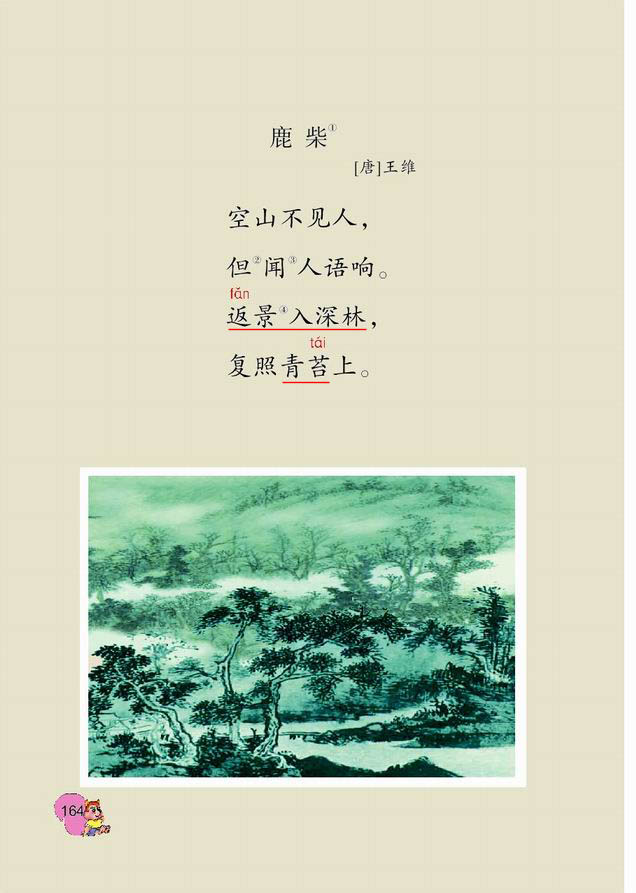 鹿柴①
[唐]王维
空山不见人，
但②闻③人语响。
fǎn
返景④入深林，
tái
复照青苔上。
164